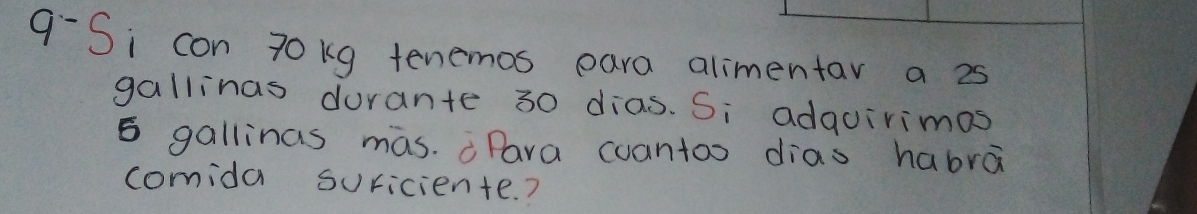 9-Si con 70 kg tenemos para alimentar a 25
gallinas durante 30 dias. Si adquirimos
5 gallinas más. ¿Para cuantos dias habrá
comida suficiente.?